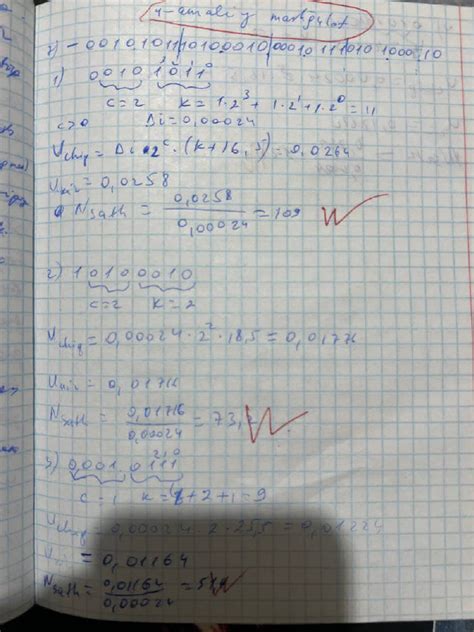 4-amaliy mashg'ulot
8) -00101011|10100010|00010111|010 1000 10
1) 0010 1011
c=2 k=1·2³+1·2¹+1·2⁰=11
c>0 Δi=0,00024
Uchiq=Δi·2ᶜ·(k+16,5)=0,0264
Ukir=0,0258
Nsath = 0,0258 / 0,00024 = 109
2) 1010 0010
c=2 k=2
Uchiq=0,00024·2²·18,5=0,01776
Ukir=0,01716
Nsath = 0,01716 / 0,00024 = 73,
3) 0001 0111
c=1 +2+1=9
Uchiq=0,00024·2·25,5=0,01224
= 0,01164
Nsath = 0,01164 / 0,00024